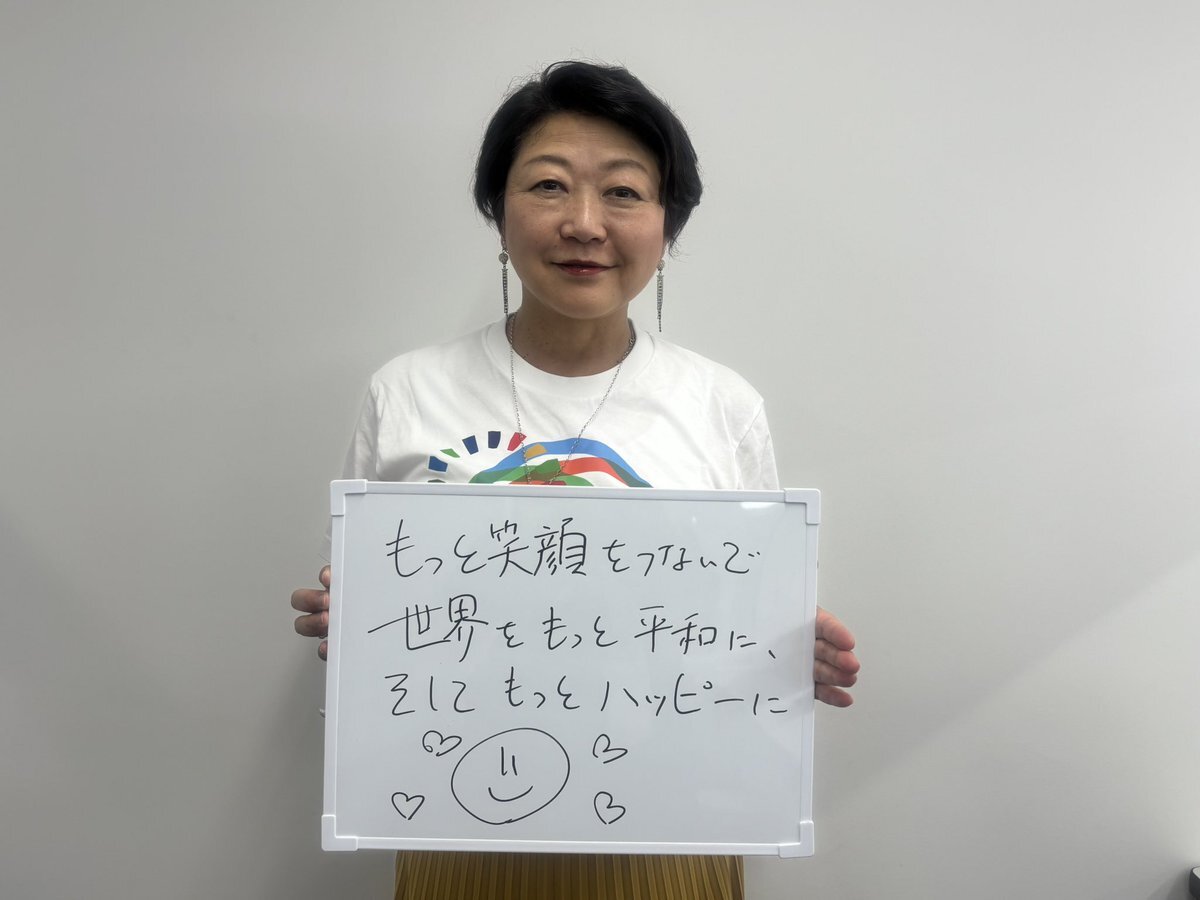 もっと笑顔をつないで
世界をもっと平和に、
そしてもっとハッピーに